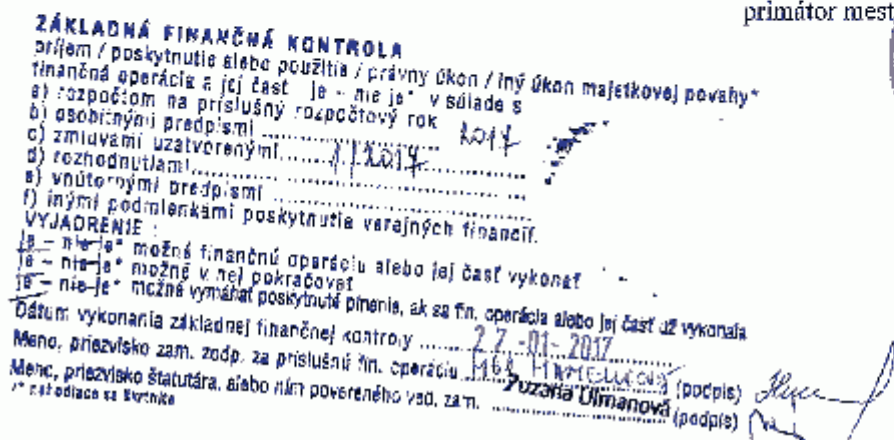 primátor mest
ZÁKLADNÁ FINANČNÁ KONTROLA
príjem / poskytnutie alebo použitie / právny úkon / iný úkon majetkovej povahy*
finančná operácia a jej časť je - nie je* v súlade s
a) rozpočtom na príslušný rozpočtový rok 2017
b) osobitnými predpismi
c) zmluvami uzatvorenými 1/2017
d) rozhodnutiami
e) vnútornými predpismi
f) inými podmienkami poskytnutia verejných financií.
VYJADRENIE :
je - nie je* možné finančnú operáciu alebo jej časť vykonať
je - nie je* možné v nej pokračovať
je - nie je* možné vymáhať poskytnuté plnenie, ak sa fin. operácia alebo jej časť už vykonala
Dátum vykonania základnej finančnej kontroly 27 -01- 2017
Meno, priezvisko zam. zodp. za príslušnú fin. operáciu (podpis)
Meno, priezvisko štatutára, alebo ním povereného ved. zam. Zuzana Ulmanová (podpis)
/* nehodiace sa škrtnite